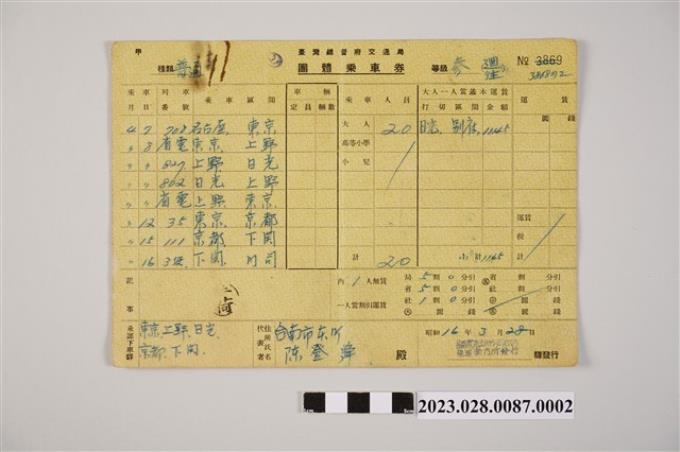 甲
臺灣總督府交通局
種類 普通
團體乘車券
等級 參
No 3869
乘車月日 列車番號 乘車區間 車輛 定員 輛數 乘車人員 大人一人當基本運賃 打切區間 金額 運賃 圓 錢
4 7 708 名古屋 東京 大人 20 日光、別府、1145
〃 8 省電 東京 上野 高等小學
〃 〃 827 上野 日光 小兒
〃 〃 802 日光 上野
〃 〃 省電 上野 東京
〃 12 35 東京 京都 運賃
〃 15 111 京都 下関 税
〃 16 3 下関 門司 計 20 小計 1145 計
記事
內 1 人無賃
一人當割引運賃
局 5 割 0 分引
省 5 割 0 分引
社 1 割 0 分引
省 割 分引
社 割 分引
圓 錢
承認下車驛 東京、上野、日光
京都、下関
代表者 住所氏名 台南市
陳登 殿
昭和 16 年 3 月 28 日
驛發行
2023.028.0087.0002